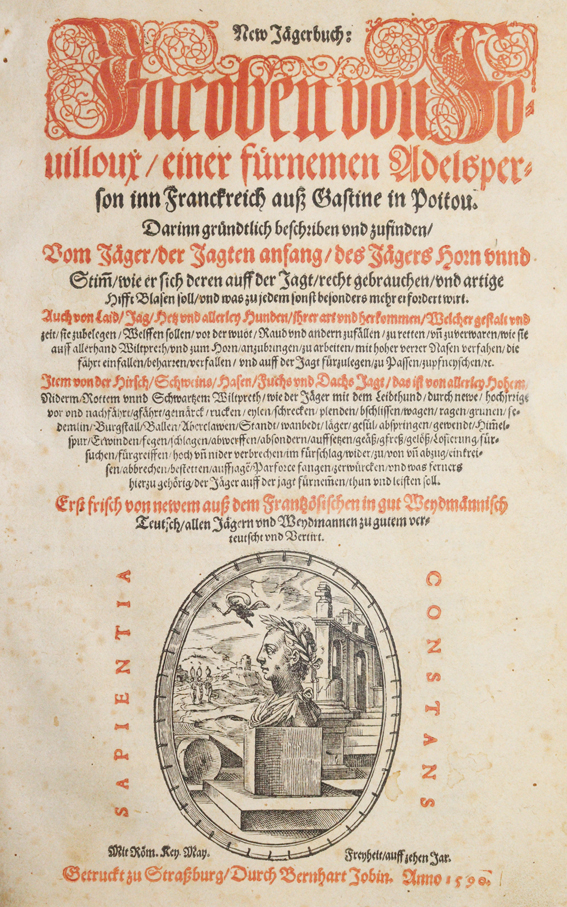 New Jägerbuch:
Jacoben von Fo-
uilloux / einer fürnemen Adelsper-
son inn Franckreich auß Gastine in Poitou.
Darinn gründtlich beschriben vnd zufinden /
Vom Jäger / der Jagten anfang / des Jägers Horn vnnd
Stim̃ / wie er sich deren auff der Jagt / recht gebrauchen / vnd artige
Hifft Blasen soll / vnd was zu jedem sonst besonders mehr erfordert wirt.
Auch von Laid / Jag / Hetz vnd allerley Hunden / ihrer art vnd herkommen / Welcher gestalt vnd
zeit / sie zubelegen / Welffen sollen / vor der wuot / Raud vnd andern zufällen / zu retten / vñ zuverwaren / wie sie
auff allerhand Wiltpreth / vnd zum Horn / anzubringen / zu arbeiten / mit hoher verret Nasen verfahen / die
fährt einfallen / beharren / verfallen / vnd auff der Jagt fürzulegen / zu Passen / zupfneyschen / ꝛc.
Item von der Hirsch / Schweins / Hasen / Fuchs vnd Dachs Jagt / das ist von allerley Hohem /
Niderm / Rottem vnnd Schwartzem Wiltpreth / wie der Jäger mit dem Leidthund / durch newe / hochjrrige
vor vnd nachfährt / gfährt / gemärck / rucken / eylen / schrecken / plenden / bschlissen / wagen / ragen / grunen / se-
demlin / Burgstall / Ballen / Aberclawen / Standt / wanbedt / läger / gesül / absprungen / gewendt / Him̃el-
spur / Erwinden / fegen / schlagen / abwerffen / absondern / auffsetzen / geäß / gfreß / gelöß / Losierung / für-
suchen / fürgreiffen / hoch vñ nider verbrechen / im fürschlag / wider / zu / von vñ abzug / einkrei-
sen / abbrechen / bestetten / auffjagẽ / Parforce fangen / zerwürcken / vnd was ferners
hierzu gehörig / der Jäger auff der jagt fürnem̃en / thun vnd leisten soll.
Erst frisch von newem auß dem Frantzösischen in gut Weydmännisch
Teutsch / allen Jägern vnd Weydmannen zu gutem ver-
teutscht vnd Vertirt.
SAPIENTIA
CONSTANS
Mit Röm. Key. May. Freyheit / auff zehen Jar.
Getruckt zu Straßburg / Durch Bernhart Jobin. Anno 1590.